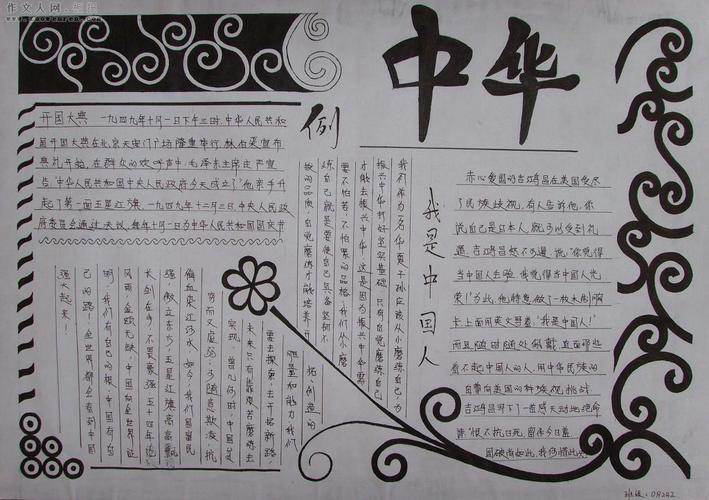 作文人网
中华
例
开国大典 一九四九年十月一日下午三时,中华人民共和
国开国大典在北京天安门广场隆重举行,林伯渠宣布
典礼开始。在群众的欢呼声中,毛泽东主席庄严宣
告“中华人民共和国中央人民政府今天成立了”他亲手升
起了第一面五星红旗。一九四九年十二月三日,中央人民政
府委员会通过决议,每年十月一日为中华人民共和国国庆节
我们作为炎华夏子孙应该从小磨练自己,为
振兴中华打好坚实基础,只有自觉磨练自己
才能去振兴中华,这是因为振兴中华需
要不怕苦,不怕累的品格,我们从小磨
练自己就是要使自己具备坚韧不
拔的品质,自觉磨练才能培养开
拓、创造的
胆量和能力我们
要去探索,去开拓新路,
未来只有靠艰苦磨练去
实现。曾几何时,中国贫
穷而又虚弱,可随意欺凌,抗
倔血染江河水,如今,我们国富民
强,傲立东方,五星红旗高高飘
长剑在手,不畏豪强,五十四年沧
风雨,金瓯无缺,中国向全世界证
明,我们有自己的根,中国有自
己的路!全世界都会看到中国
强大起来!
我是中国人
赤心爱国的吉鸿昌在美国受尽
了民族歧视,有人告诉他,你
说自己是日本人,就可以受到礼
遇。吉鸿昌怒不可遏,说“你觉得
当中国人丢脸,我觉得当中国人光
荣!”为此,他特意做了一枚木制胸
卡上面用英文写着“我是中国人!”
而且随时随处佩戴,直面那些
看不起中国人的人,用中华民族的
自尊向美国的种族歧视挑战。
吉鸿昌写下了一首感天动地绝命
诗“恨不抗日死,留作今日羞
国破尚如此,我何惜此头
班级:08242